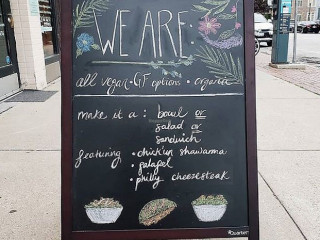 WE ARE:
all vegan • GF options • organic
make it a : bowl or
salad or
sandwich
featuring • chick'un shawarma
• falafel
• philly cheezesteak
Quartet